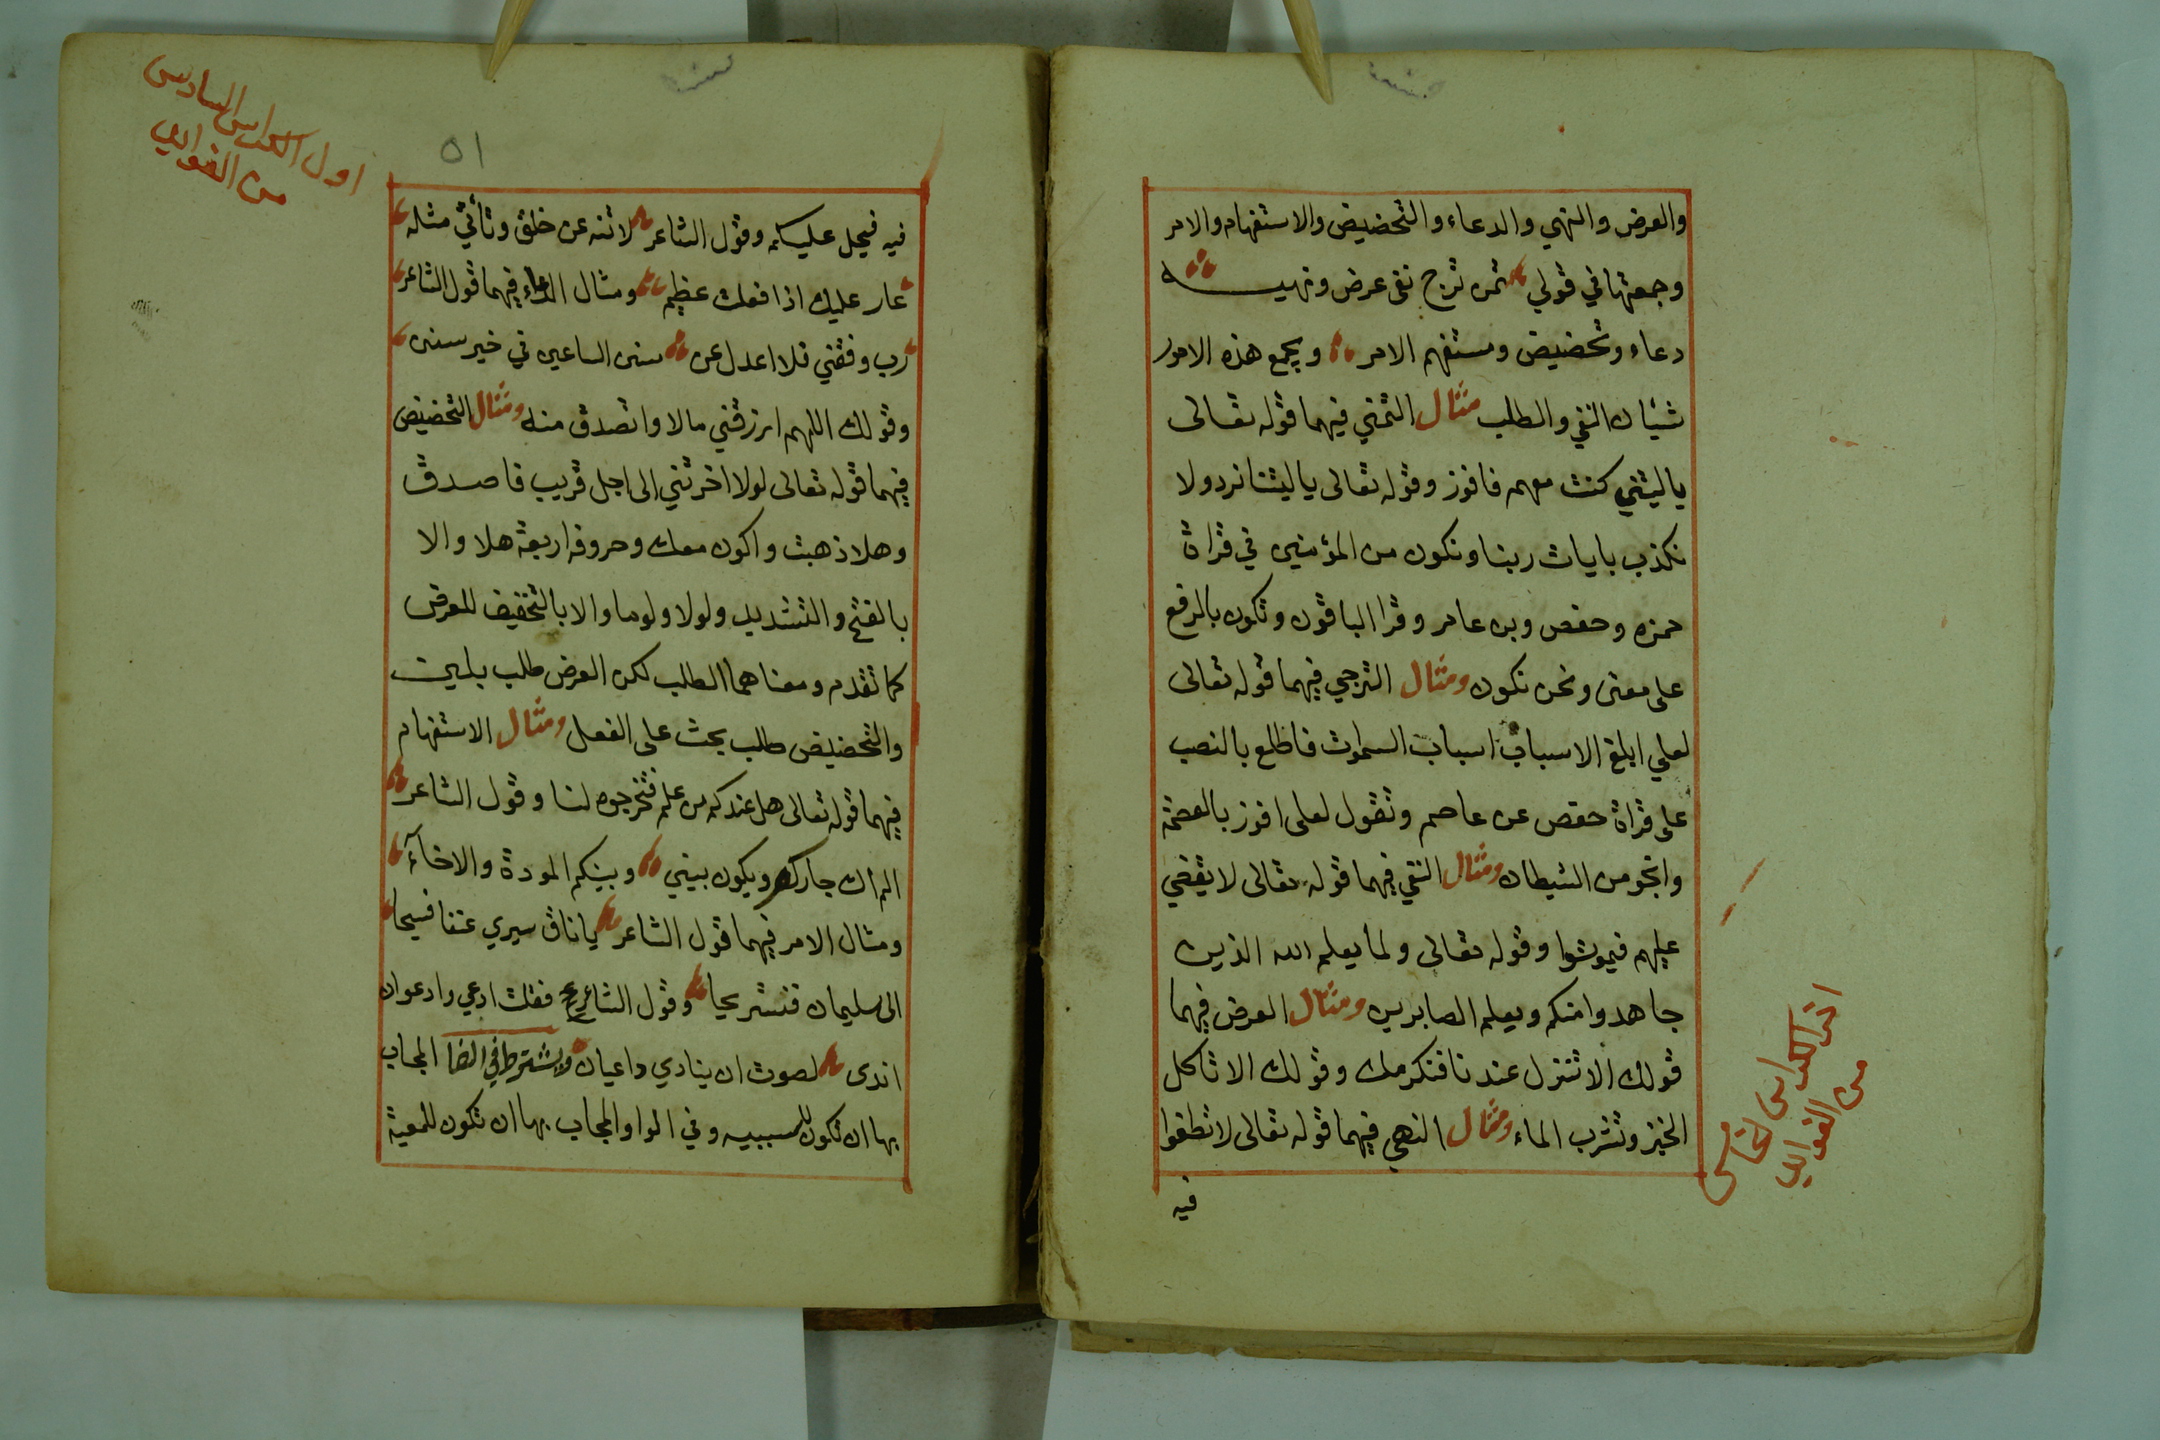 والعرض والنهي والدعاء والتحضيض والاستفهام والامر
وجمعتها في قولي تمن ترج نفى عرض ونهيه
دعاء وتحضيض ومستفهم الامر ويجمع هذه الامور
شيئان النفي والطلب مثال التمني فيهما قوله تعالى
ياليتني كنت معهم فافوز وقوله تعالى ياليتنا نرد ولا
نكذب بايات ربنا ونكون من المؤمنين في قراة
حمزه وحفص وبن عامر وقرا الباقون ونكون بالرفع
على معنى ونحن نكون ومثال الترجي فيهما قوله تعالى
لعلي ابلغ الاسباب اسباب السموت فاطلع بالنصب
على قراة حفص عن عاصم وتقول لعلى افوز بالعصمة
وانجو من الشيطان ومثال النفي فيهما قوله تعالى لا يقضي
عليهم فيموتوا وقوله تعالى ولما يعلم الله الذين
جاهدوا منكم ويعلم الصابرين ومثال العرض فيهما
قولك الا تنزل عندنا فنكرمك وقولك الا تاكل
الخبز وتشرب الماء ومثال النهي فيهما قوله تعالى لا تطغوا
فيه
اخر الكراس الخامس
من الفوايد
اول الكراس السادس
من الفوايد
٥١
فيه فيحل عليكم وقول الشاعر لا تنه عن خلق وتأتي مثله
عار عليك اذا فعلت عظيم ومثال الدعاء فيهما قول الشاعر
رب وفقني فلا اعدل عن سنن الساعين في خير سنن
وقولك اللهم ارزقني مالا واتصدق منه ومثال التحضيض
فيهما قوله تعالى لولا اخرتني الى اجل قريب فاصدق
وهلا ذهبت واكون معك وحروفه اربعة هلا والا
بالفتح والتشديد ولولا ولوما والا بالتخفيف للعرض
كما تقدم ومعناهما الطلب لكن العرض طلب بلين
والتحضيض طلب بحث على الفعل ومثال الاستفهام
فيهما قوله تعالى هل عندكم من علم فتخرجوه لنا وقول الشاعر
الم اك جاركم ويكون بيني وبينكم المودة والاخآء
ومثال الامر فيهما قول الشاعر ياناق سيري عنقا فسيحا
الى سليمان فنستريحا وقول الشاعر فقلت ادعي وادعو ان
اندى لصوت ان ينادي داعيان ويشترط في الفا المجاب
بها ان تكون للسببيه وفي الواو المجاب بها ان تكون للمعية